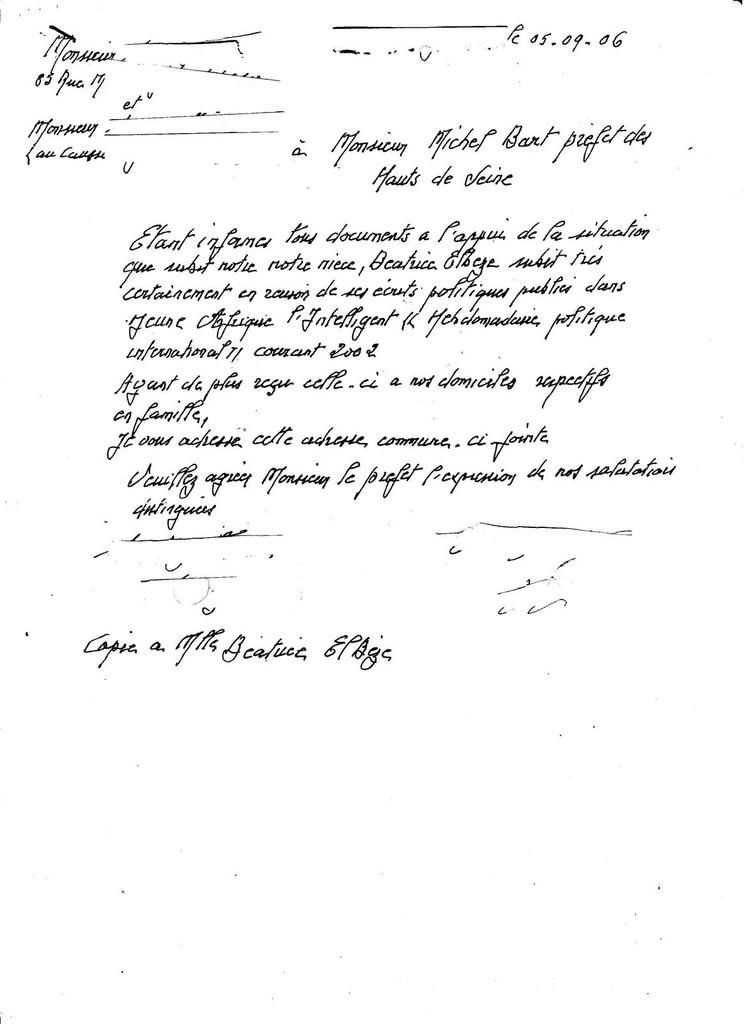 le 05-09-06
Monsieur
85 Rue M
et
Monsieur
au Causse
à Monsieur Michel Bart préfet des
Hauts de Seine
Etant informés tous documents a l'appui de la situation
que subit notre notre niece, Beatrice El Beze subit trés
certainement en raison de ses écrits politiques publiés dans
Jeune Afrique l'Intelligent (( Hebdomadaire politique
international )) courant 2002
Ayant de plus reçu celle-ci a nos domiciles respectifs
en famille,
Je vous adresse cette adresse commune-ci-jointe
Veuillez agréer Monsieur le prefet l'expression de nos salutations
distinguées
Copie a Mlle Béatrice El Bèze